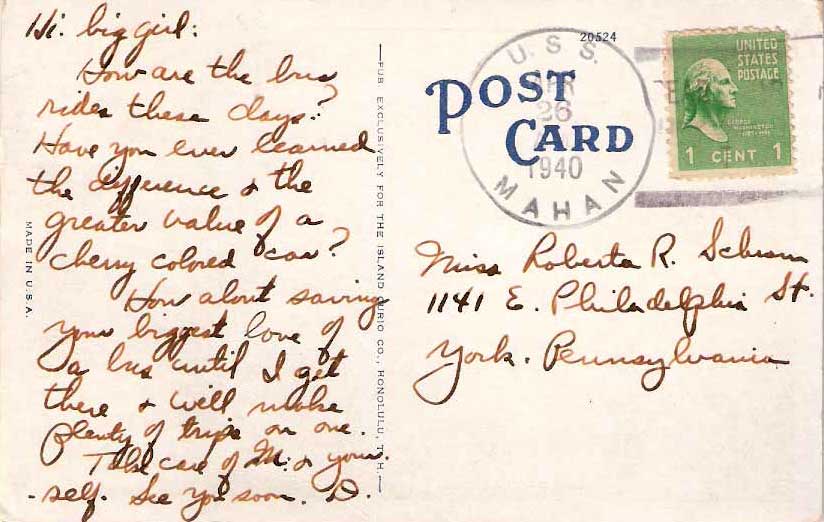 Hi. big girl:
How are the bus
rides these days?
Have you ever learned
the difference & the
greater value of a
cherry colored car?
How about saving
your biggest love of
a bus until I get
there & will make
plenty of trips on one.
Take care of M. & your-
-self. See you soon. D.
MADE IN U.S.A.
PUB EXCLUSIVELY FOR THE ISLAND CURIO CO., HONOLULU, T.H.
20524
POST
CARD
U.S.S.
26
1940
MAHAN
UNITED
STATES
POSTAGE
GEORGE
WASHINGTON
1 CENT 1
Miss Roberta R. Schram
1141 E. Philadelphia St.
York. Pennsylvania